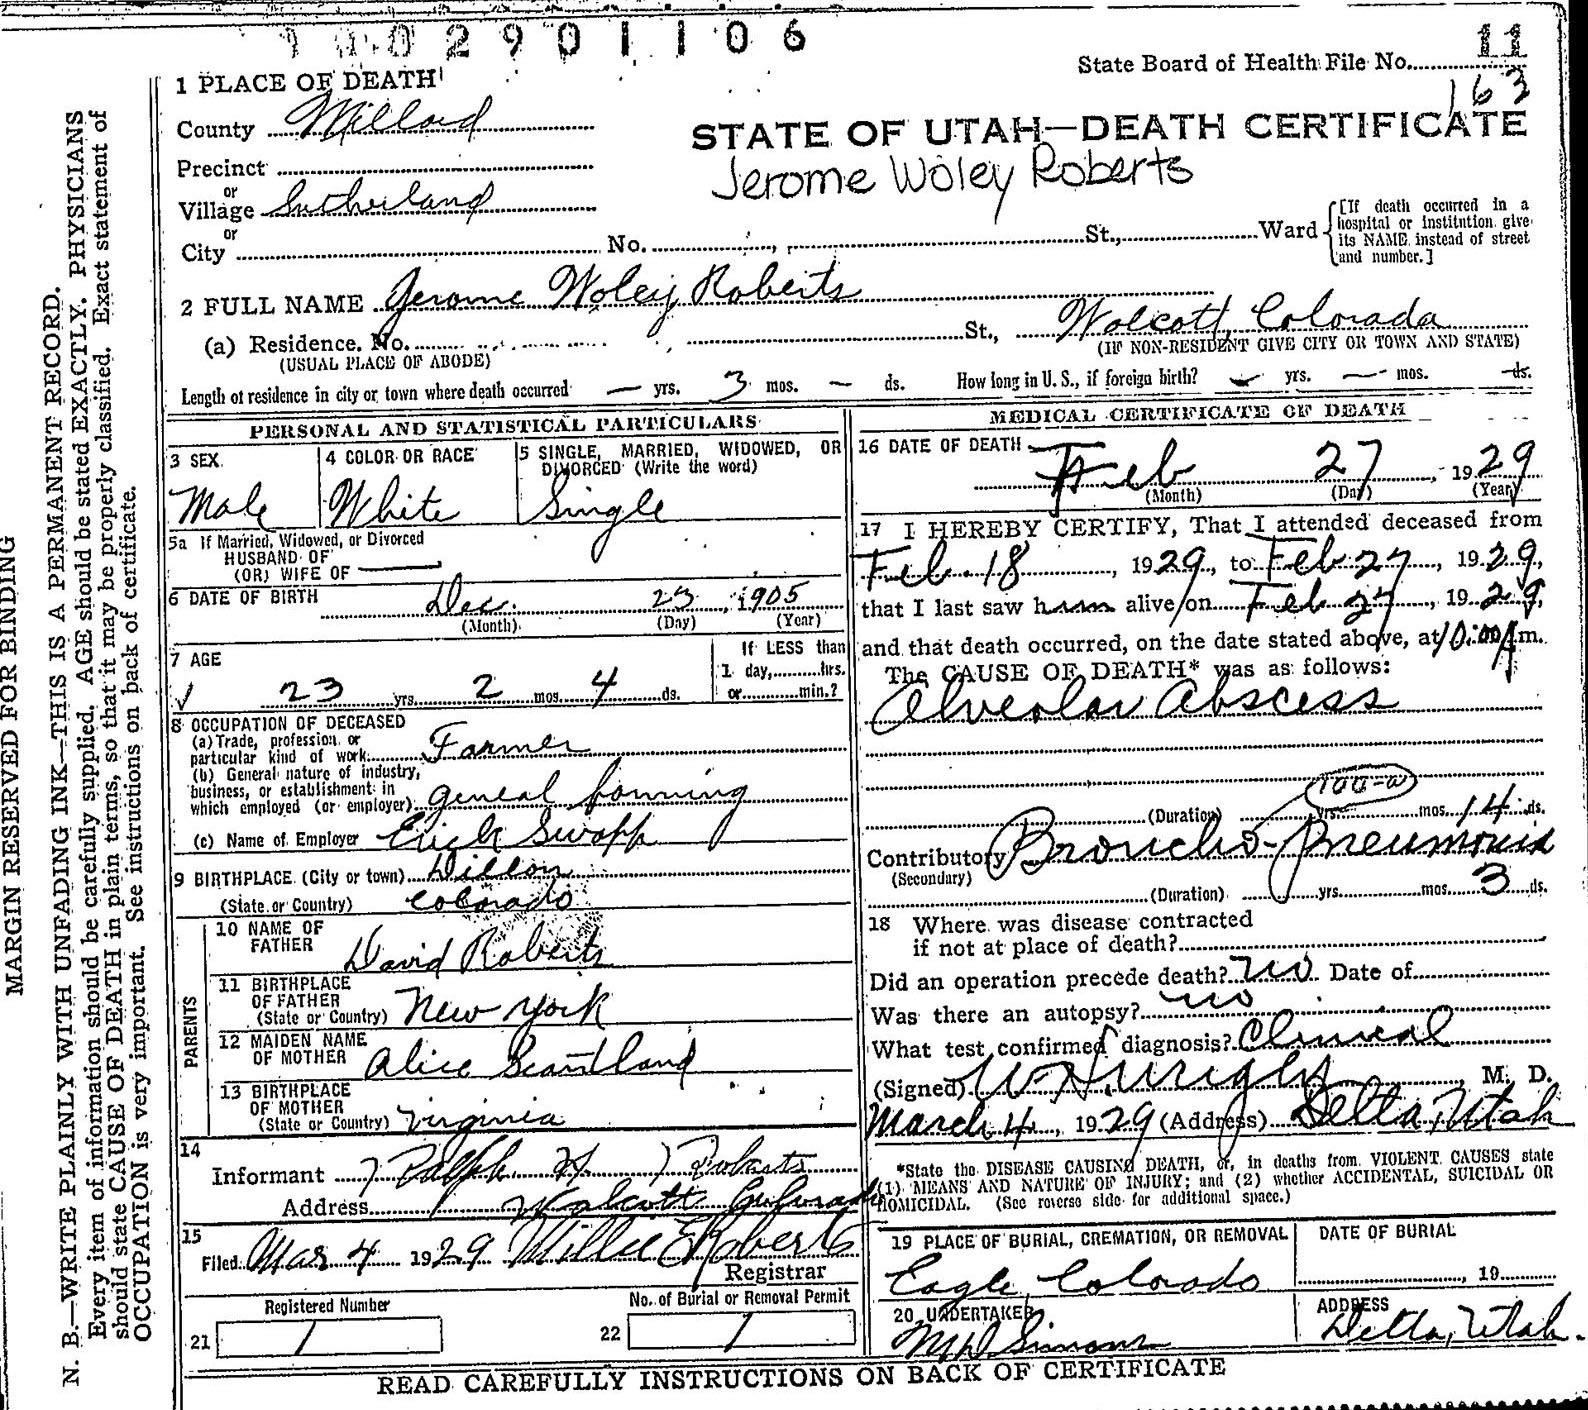 1002901106
State Board of Health File No. 11
163
1 PLACE OF DEATH
County Millard
STATE OF UTAH—DEATH CERTIFICATE
Precinct
Jerome Woley Roberts
or
Village Sutherland
or
City No. St., Ward
[If death occurred in a
hospital or institution give
its NAME instead of street
and number.]
2 FULL NAME Jerome Woley Roberts
(a) Residence. No. St., Wolcott, Colorada
(USUAL PLACE OF ABODE) (IF NON-RESIDENT GIVE CITY OR TOWN AND STATE)
Length of residence in city or town where death occurred — yrs. 3 mos. — ds. How long in U. S., if foreign birth? yrs. — mos. ds.
PERSONAL AND STATISTICAL PARTICULARS
3 SEX
Male
4 COLOR OR RACE
White
5 SINGLE, MARRIED, WIDOWED, OR
DIVORCED (Write the word)
Single
5a If Married, Widowed, or Divorced
HUSBAND OF
(OR) WIFE OF —
6 DATE OF BIRTH Dec. 23, 1905
(Month) (Day) (Year)
7 AGE
23 yrs. 2 mos. 4 ds.
If LESS than
1 day, hrs.
or min.?
8 OCCUPATION OF DECEASED
(a) Trade, profession or
particular kind of work Farmer
(b) General nature of industry,
business, or establishment in
which employed (or employer) geneal farming
(c) Name of Employer Erick Swapp
9 BIRTHPLACE (City or town) Dillon
(State or Country) Colorado
PARENTS
10 NAME OF
FATHER David Roberts
11 BIRTHPLACE
OF FATHER
(State or Country) New York
12 MAIDEN NAME
OF MOTHER Alice Scantland
13 BIRTHPLACE
OF MOTHER
(State or Country) Virginia
14
Informant Ralph H Roberts
Address Wolcott Colorado
15
Filed Mar 4 1929 Millie E Roberts
Registrar
Registered Number
21 1
No. of Burial or Removal Permit
22 1
MEDICAL CERTIFICATE OF DEATH
16 DATE OF DEATH
Feb 27, 1929
(Month) (Day) (Year)
17 I HEREBY CERTIFY, That I attended deceased from
Feb. 18, 1929, to Feb 27, 1929,
that I last saw him alive on Feb 27, 1929,
and that death occurred, on the date stated above, at 10:00 A m.
The CAUSE OF DEATH* was as follows:
Alveolar Abscess
100-a
(Duration) yrs. mos. 14 ds.
Contributory Broncho-Pneumonia
(Secondary)
(Duration) yrs. mos. 3 ds.
18 Where was disease contracted
if not at place of death?
Did an operation precede death? no Date of
Was there an autopsy? no
What test confirmed diagnosis? Clinical
(Signed) M. D.
March 4, 1929 (Address) Delta, Utah
*State the DISEASE CAUSING DEATH, or, in deaths from VIOLENT CAUSES state
(1) MEANS AND NATURE OF INJURY; and (2) whether ACCIDENTAL, SUICIDAL OR
HOMICIDAL. (See reverse side for additional space.)
19 PLACE OF BURIAL, CREMATION, OR REMOVAL
Eagle, Colorado
DATE OF BURIAL
, 19
20 UNDERTAKER
ADDRESS
Delta, Utah.
READ CAREFULLY INSTRUCTIONS ON BACK OF CERTIFICATE
MARGIN RESERVED FOR BINDING
N. B.—WRITE PLAINLY WITH UNFADING INK—THIS IS A PERMANENT RECORD.
Every item of information should be carefully supplied. AGE should be stated EXACTLY. PHYSICIANS
should state CAUSE OF DEATH in plain terms, so that it may be properly classified. Exact statement of
OCCUPATION is very important. See instructions on back of certificate.